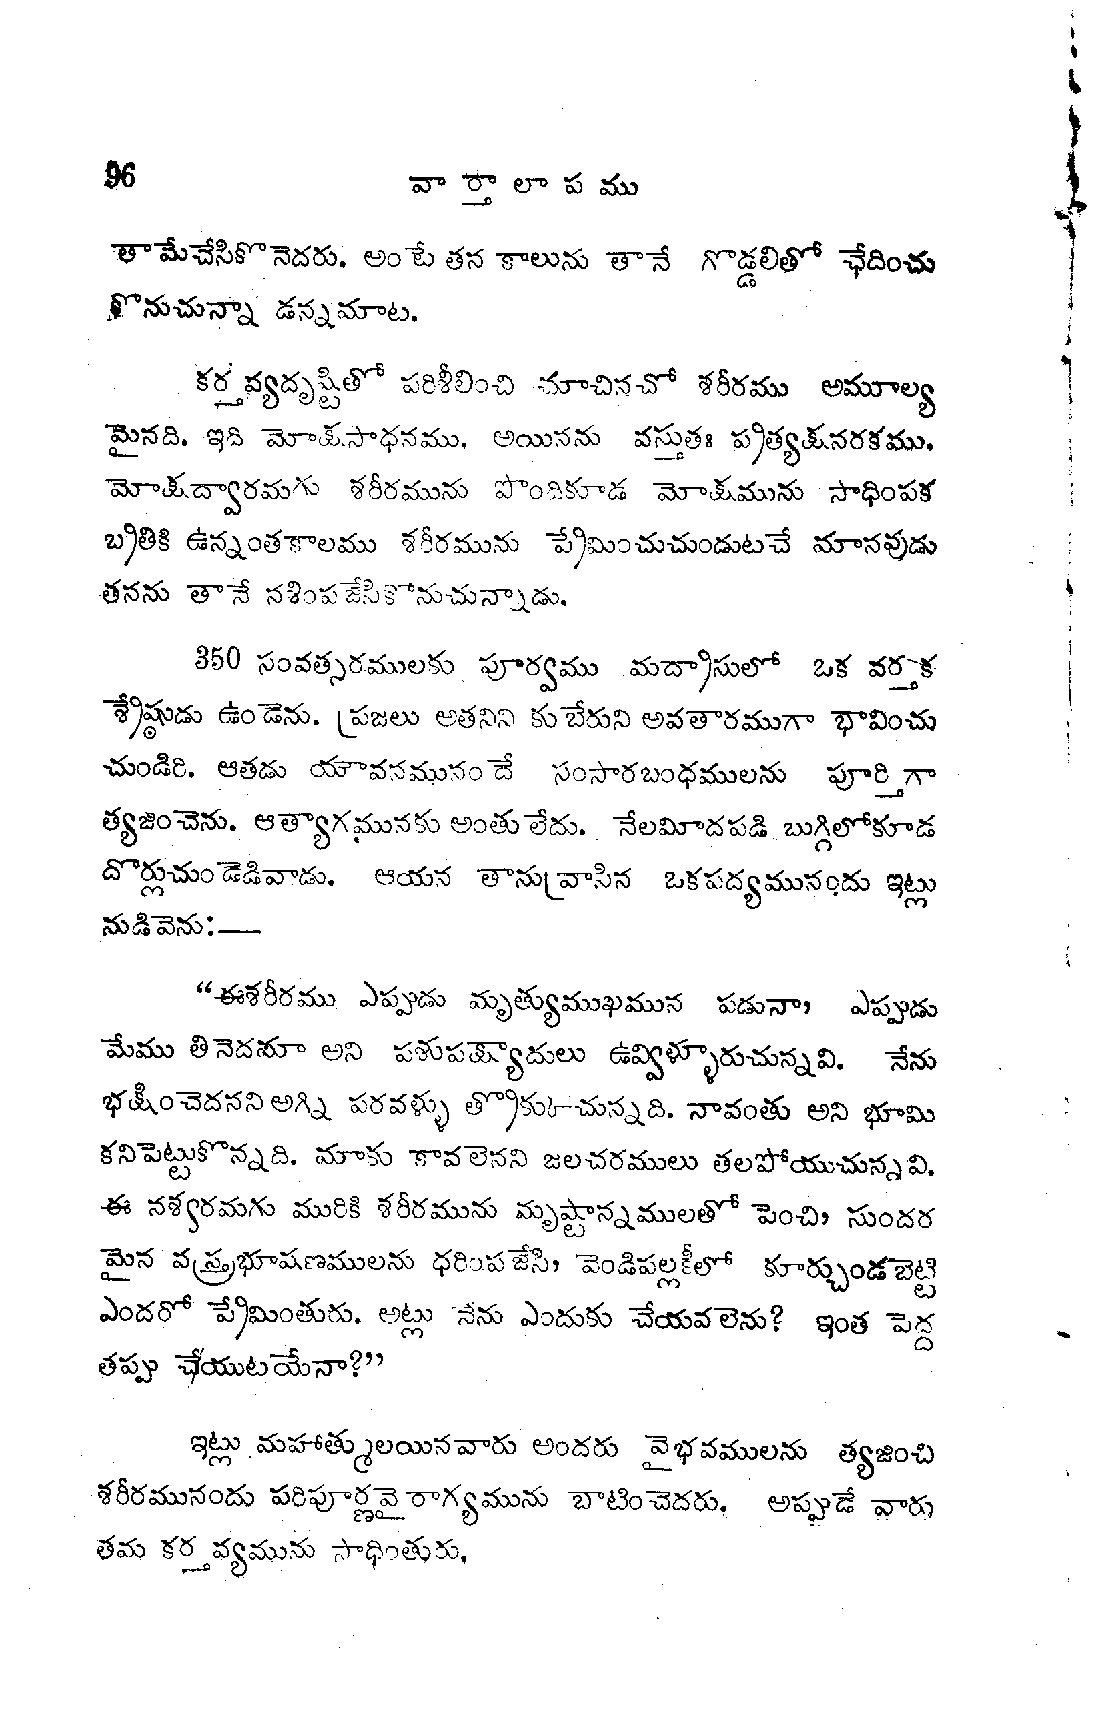 96
వార్తాలాపము
తామేచేసికొనెదరు. అంటే తన కాలును తానే గొడ్డలితో ఛేదించు
కొనుచున్నా డన్నమాట.
కర్తవ్యదృష్టితో పరిశీలించి చూచినచో శరీరము అమూల్య
మైనది. ఇది మోక్షసాధనము, అయినను వస్తుతః ప్రత్యక్షనరకము.
మోక్షద్వారమగు శరీరమును పొందికూడ మోక్షమును సాధింపక
బ్రతికి ఉన్నంతకాలము శరీరమును ప్రేమించుచుండుటచే మానవుడు
తనను తానే నశింపజేసికొనుచున్నాడు.
350 సంవత్సరములకు పూర్వము మద్రాసులో ఒక వర్తక
శ్రేష్ఠుడు ఉండెను. ప్రజలు అతనిని కుబేరుని అవతారముగా భావించు
చుండిరి. ఆతడు యౌవనమునందే సంసారబంధములను పూర్తిగా
త్యజించెను. ఆత్యాగమునకు అంతులేదు. నేలమీదపడి బుగ్గిలోకూడ
దొర్లుచుండెడివాడు. ఆయన తానువ్రాసిన ఒకపద్యమునందు ఇట్లు
నుడివెను:—
“ఈశరీరము ఎప్పుడు మృత్యుముఖమున పడునా, ఎప్పుడు
మేము తినెదమా అని పశుపక్ష్యాదులు ఉవ్విళ్ళూరుచున్నవి. నేను
భక్షించెదనని అగ్ని పరవళ్ళు త్రొక్కుచున్నది. నావంతు అని భూమి
కనిపెట్టుకొన్నది. మాకు కావలెనని జలచరములు తలపోయుచున్నవి.
ఈ నశ్వరమగు మురికి శరీరమును మృష్టాన్నములతో పెంచి, సుందర
మైన వస్త్రభూషణములను ధరింపజేసి, వెండిపల్లకీలో కూర్చుండబెట్టి
ఎందరో ప్రేమింతురు. అట్లు నేను ఎందుకు చేయవలెను? ఇంత పెద్ద
తప్పు చేయుటయేనా?”
ఇట్లు మహాత్ములయినవారు అందరు వైభవములను త్యజించి
శరీరమునందు పరిపూర్ణవైరాగ్యమును బాటించెదరు. అప్పుడే వారు
తమ కర్తవ్యమును సాధింతురు.